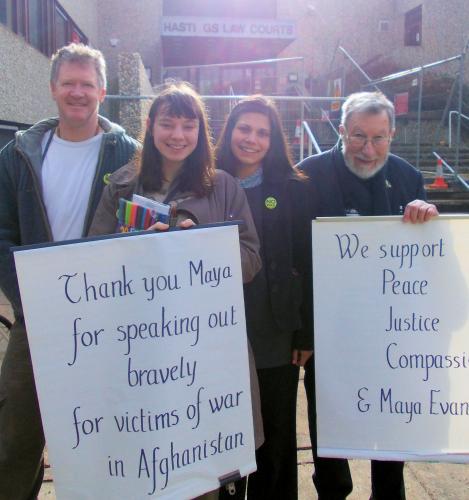 HASTI GS LAW COURTS
Thank you Maya
for speaking out
bravely
for victims of war
in Afghanistan
We support
Peace
Justice
Compassi
& Maya Evan